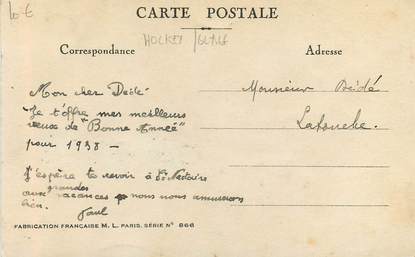 10 €
CARTE POSTALE
HOCKEY / GLACE
Correspondance
Adresse
Mon cher Dédé
Je t'offre mes meilleurs
vœux de "Bonne Année"
pour 1938 -
J'espère te revoir à
grandes
aux vacances nous nous amuserons
bien.
Paul
Monsieur Dédé
Latouche.
FABRICATION FRANÇAISE M. L. PARIS. SÉRIE N° 866